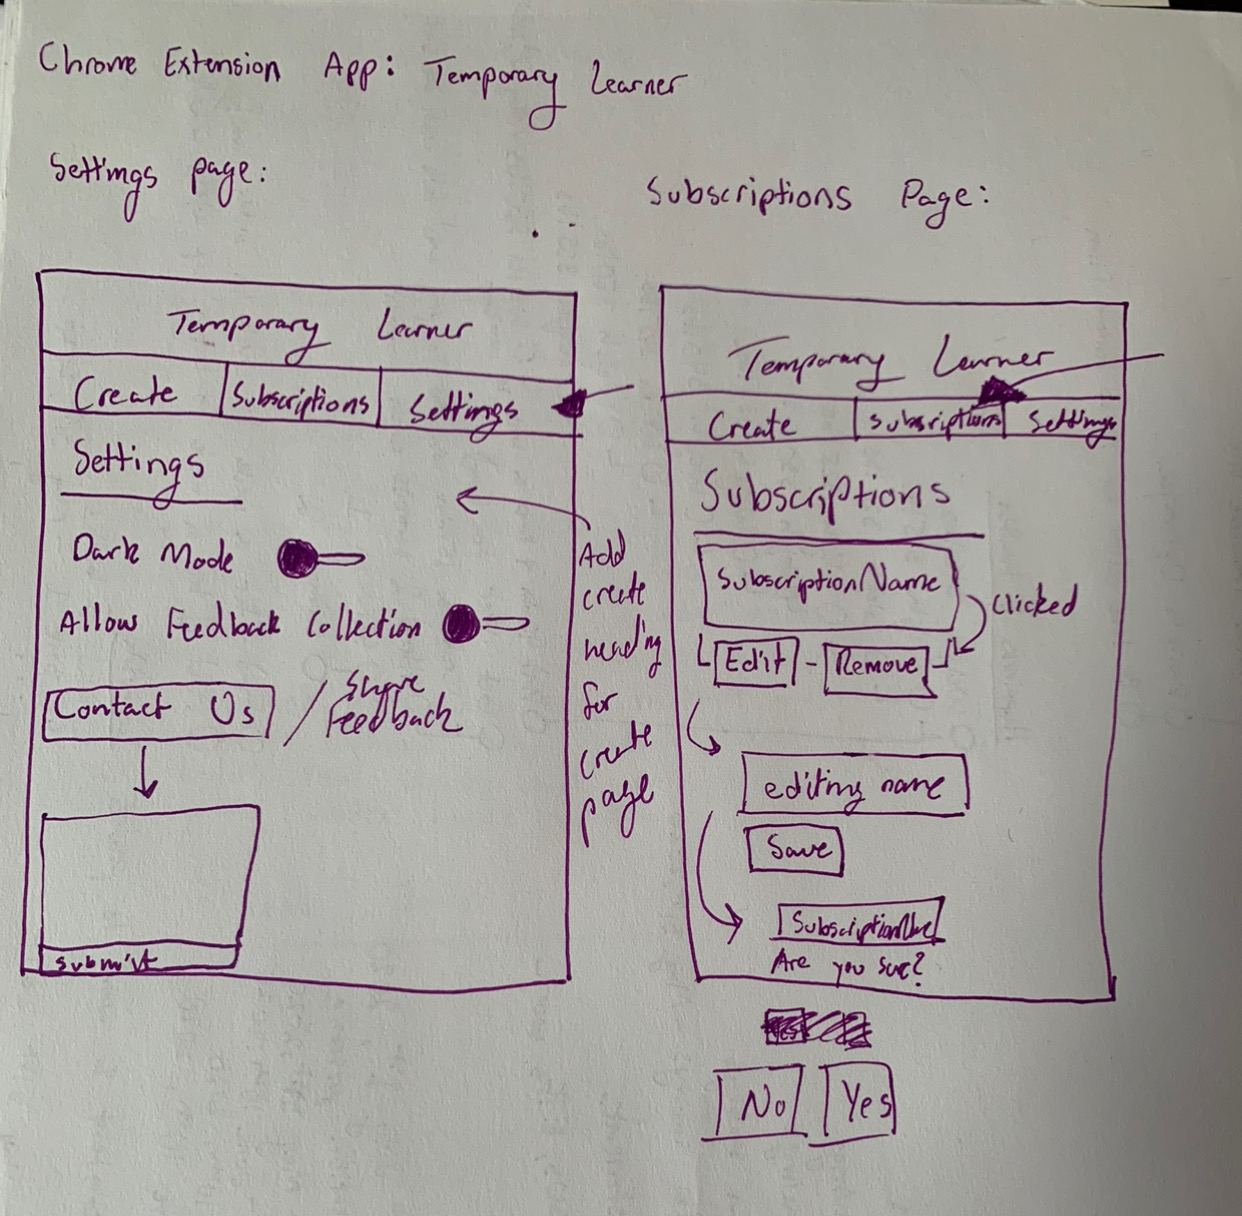 Chrome Extension App: Temporary Learner
Settings page:
Temporary Learner
Create Subscriptions Settings
Settings
Dark Mode
Allow Feedback Collection
Contact Us / Share Feedback
Submit
Add
create
heading
for
create
page
Subscriptions Page:
Temporary Learner
Create Subscriptions Settings
Subscriptions
SubscriptionName
Clicked
Edit - Remove
editing name
Save
Are you sure?
No Yes